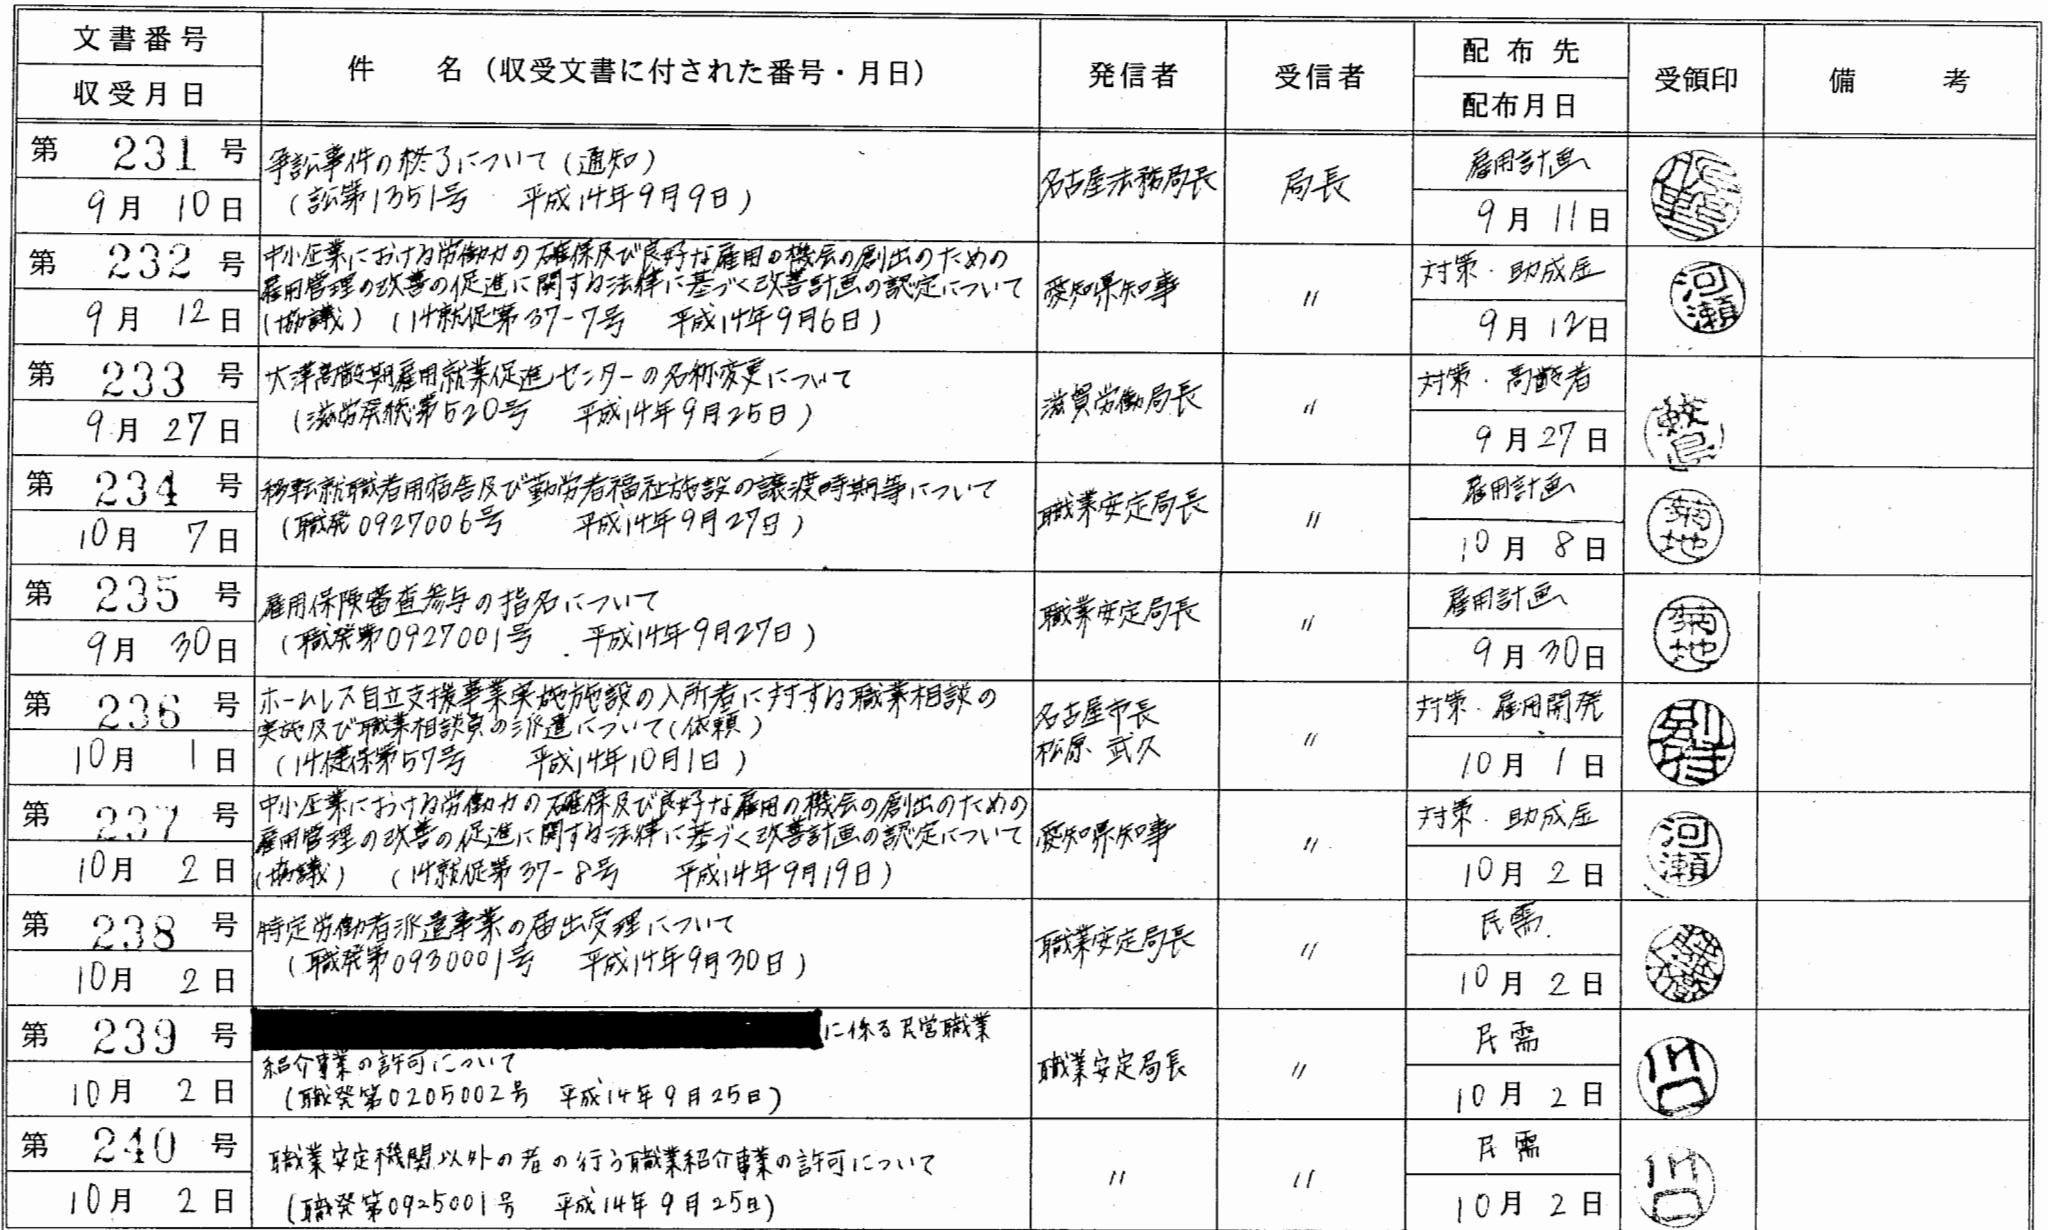 文書番号
収受月日
件 名（収受文書に付された番号・月日）
発信者
受信者
配布先
配布月日
受領印
備 考
第 231 号
9月 10日
争訟事件の終了について（通知）
（訟第1351号 平成14年9月9日）
名古屋法務局長
局長
雇用計画
9月 11日
第 232 号
9月 12日
中小企業における労働力の確保及び良好な雇用の機会の創出のための
雇用管理の改善の促進に関する法律に基づく改善計画の認定について
（協議）（14就促第37-7号 平成14年9月6日）
愛知県知事
〃
対策・助成金
9月 12日
河瀬
第 233 号
9月 27日
大津高齢期雇用就業促進センターの名称変更について
（滋労発総第520号 平成14年9月25日）
滋賀労働局長
〃
対策・高齢者
9月 27日
鮫島
第 234 号
10月 7日
移転就職者用宿舎及び勤労者福祉施設の譲渡時期等について
（職発0927006号 平成14年9月27日）
職業安定局長
〃
雇用計画
10月 8日
菊地
第 235 号
9月 30日
雇用保険審査参与の指名について
（職発第0927001号 平成14年9月27日）
職業安定局長
〃
雇用計画
9月 30日
菊地
第 236 号
10月 1日
ホームレス自立支援事業実施施設の入所者に対する職業相談の
実施及び職業相談員の派遣について（依頼）
（14健保第57号 平成14年10月1日）
名古屋市長
松原 武久
〃
対策・雇用開発
10月 1日
別府
第 237 号
10月 2日
中小企業における労働力の確保及び良好な雇用の機会の創出のための
雇用管理の改善の促進に関する法律に基づく改善計画の認定について
（協議）（14就促第37-8号 平成14年9月19日）
愛知県知事
〃
対策・助成金
10月 2日
河瀬
第 238 号
10月 2日
特定労働者派遣事業の届出受理について
（職発第0930001号 平成14年9月30日）
職業安定局長
〃
民需
10月 2日
第 239 号
10月 2日
に係る民営職業
紹介事業の許可について
（職発第0205002号 平成14年9月25日）
職業安定局長
〃
民需
10月 2日
川口
第 240 号
10月 2日
職業安定機関以外の者の行う職業紹介事業の許可について
（職発第0925001号 平成14年9月25日）
〃
〃
民需
10月 2日
川口